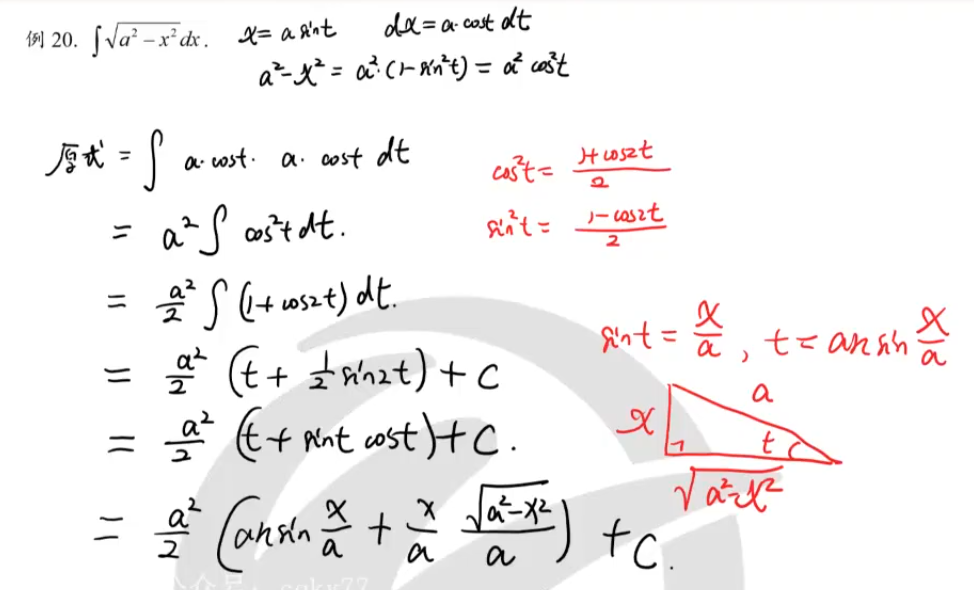 例 20. ∫√(a²−x²) dx. x = a sint dx = a·cost dt
a²−x² = a²·(1−sin²t) = a² cos²t
原式 = ∫ a·cost· a· cost dt
= a² ∫ cos²t dt.
= a²/2 ∫ (1+cos2t) dt.
= a²/2 (t + 1/2 sin2t) + C
= a²/2 (t + sint cost) + C.
= a²/2 (arcsin x/a + x/a √(a²−x²)/a) + C.
cos²t = (1+cos2t)/2
sin²t = (1−cos2t)/2
sint = x/a , t = arcsin x/a
a
x t
√(a²−x²)